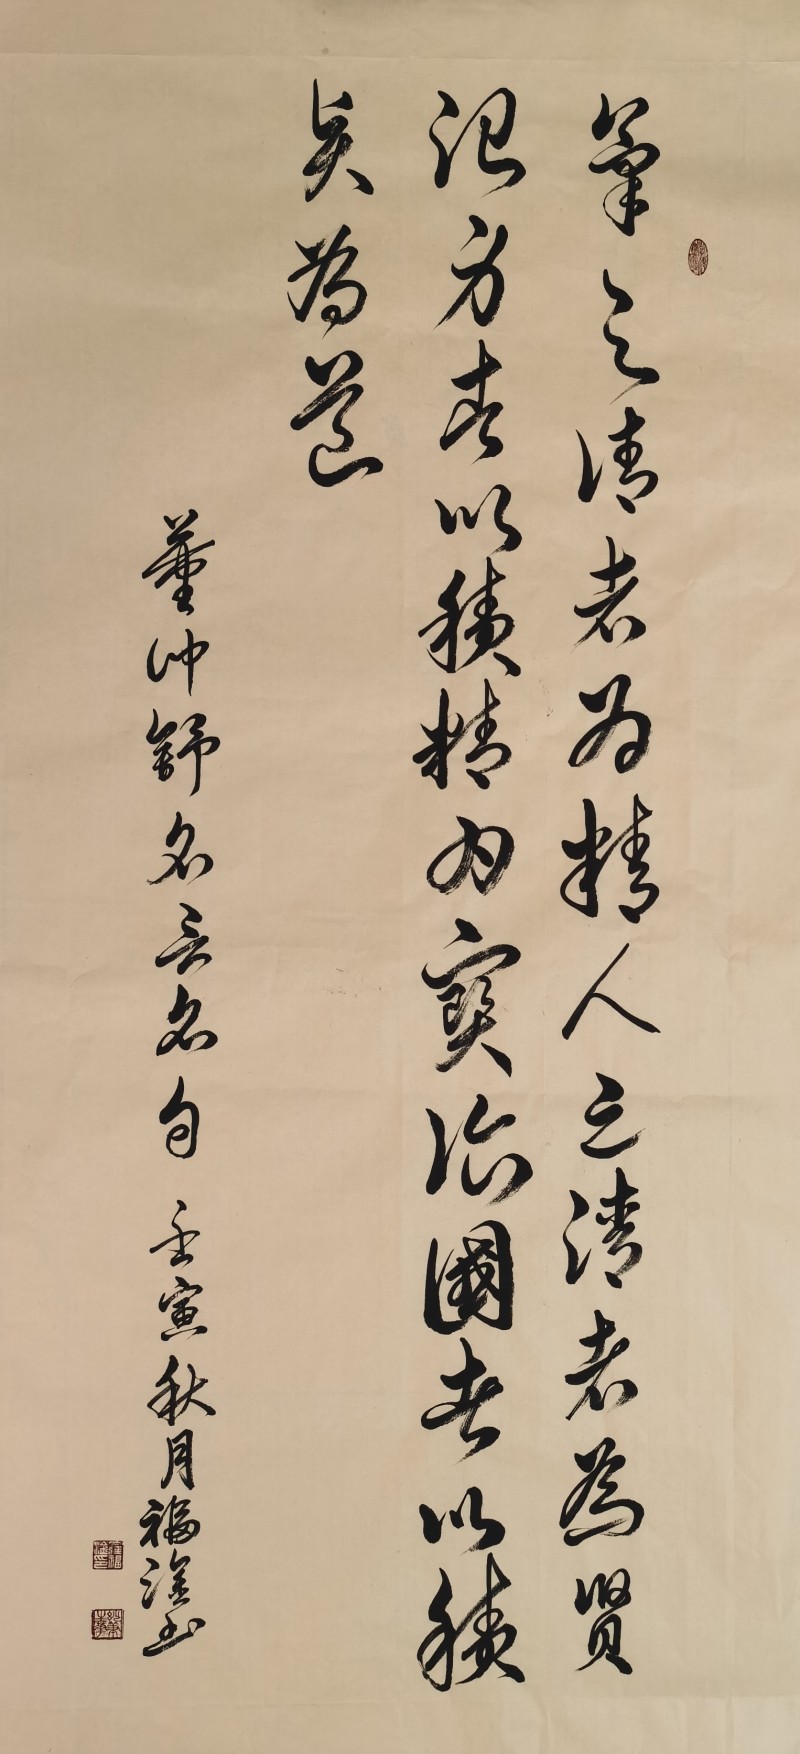 氣之清者為精人之清者為賢
治身者以積精為寶治國者以積
賢為道
董仲舒名言名句 壬寅秋月福淦书